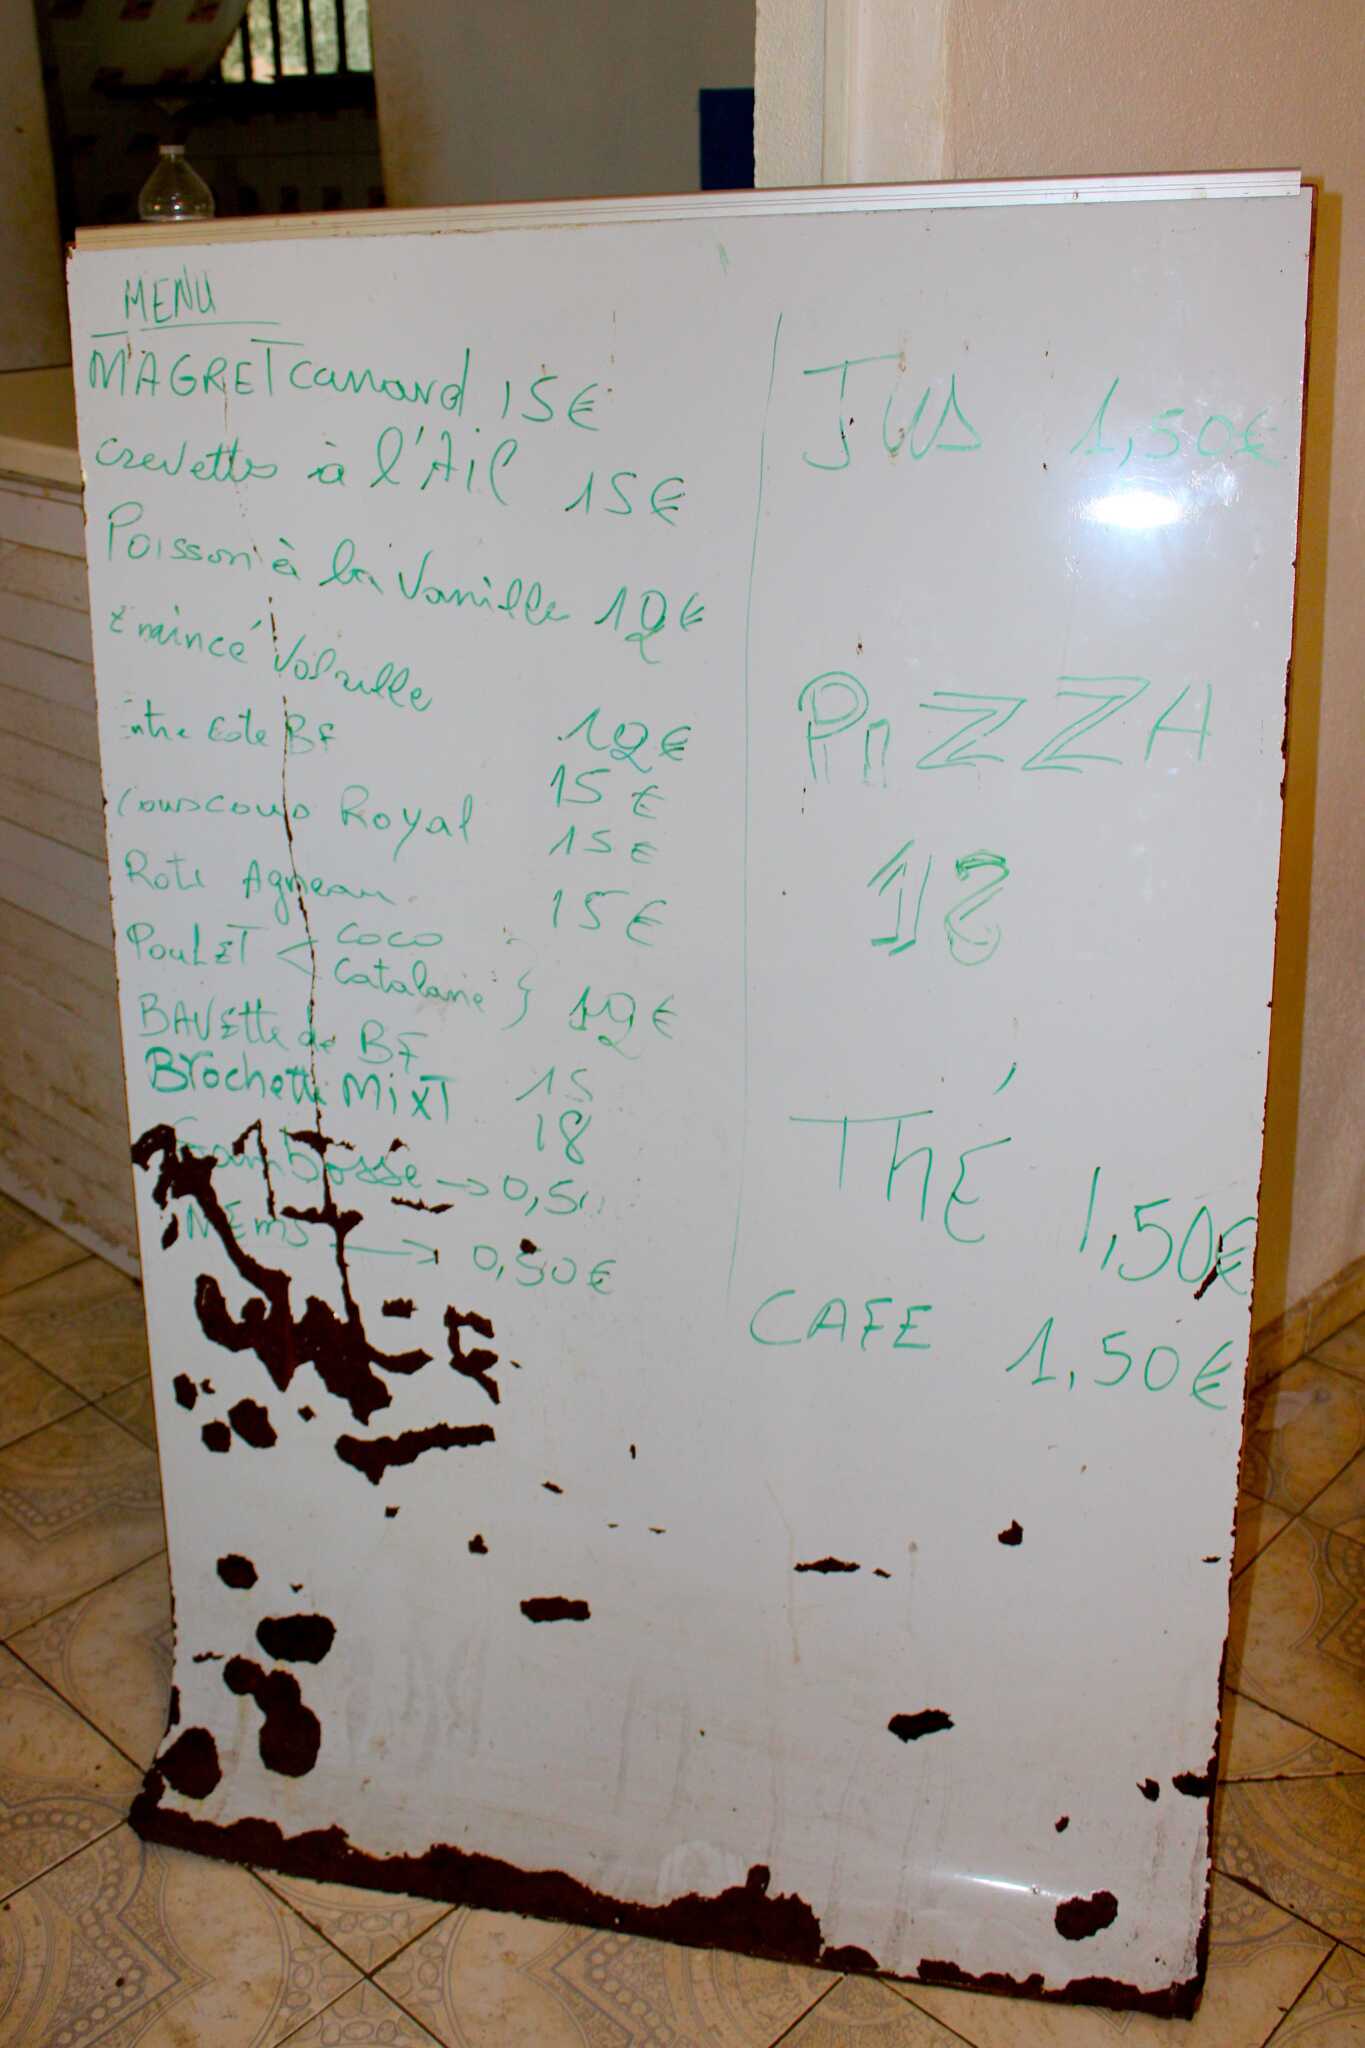 MENU
MAGRET canard 15€
crevettes à l'AiL 15€
Poisson à la Vanille 12€
Emincé Volaille 12€
Entre Cote BF 15€
Couscous Royal 15€
Roti Agneau 15€
POULET < COCO
Catalane } 12€
BAVEtte de BF 15
Brochette MiXT 18
Sambosse → 0,50
NEMS → 0,50€
JUS 1,50€
PIZZA
12
THÉ 1,50€
CAFE 1,50€